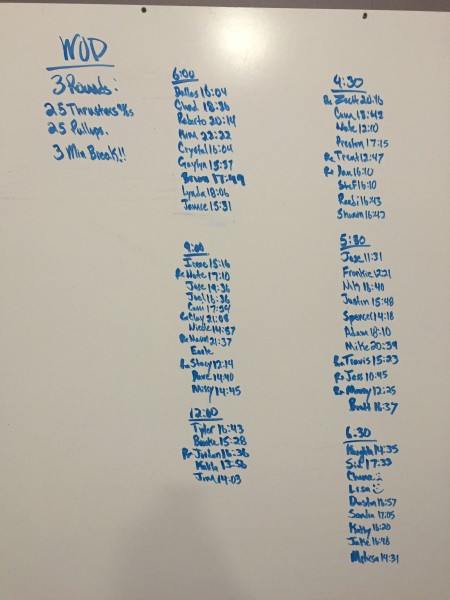 WOD
3 Rounds:
25 Thrusters
25 Pullups.
3 Min Break!!
6:00
Dallas 16:04
Chad 18:36
Roberto 20:14
22:22
Crystal 16:04
Gaylyn 15:37
Bruno 17:49
Lynda 18:06
Jannie 15:31
9:00
Irene 15:16
Rx Nate 17:10
Jose 19:36
Joel 16:36
Cami 17:54
Rx Clay 21:08
Nicole 14:57
21:37
Earle
Rx Stacy 12:14
Dave 14:40
Missy 14:45
12:00
Tyler 16:43
Brooke 15:28
Rx Jordan 16:36
Kahla 13:58
Jim 14:03
4:30
Rx Zach 20:16
Cam
Nate 12:10
Preston 17:15
Rx Trent 12:47
Rx Dan 16:10
Stef 16:10
Randi 16:43
Shawn 16:47
5:30
Jose 11:31
Frankie 12:21
Nik 16:40
Justin 15:48
Spencer 14:18
Adam 18:10
Mike 20:39
Rx Travis 15:23
Rx Jess 10:45
Rx Manny 12:25
Brett 16:37
6:30
14:35
Sid 17:33
Lisa
Dustin 16:57
Sandra 17:05
Kathy 16:20
Jake 16:48
Melissa 14:31